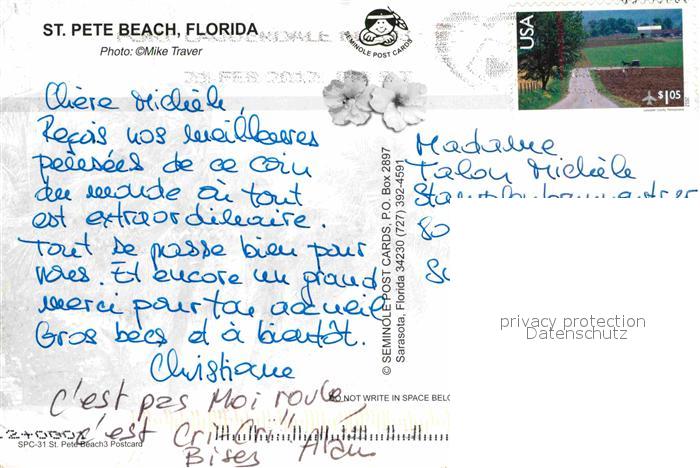 ST. PETE BEACH, FLORIDA
Photo: ©Mike Traver
SEMINOLE POST CARDS
USA
$1.05
Chère Michèle,
Reçois nos meilleures
pensées de ce coin
du monde où tout
est extraordinaire.
Tout se passe bien pour
nous. Et encore un grand
merci pour ton accueil
Gros becs et à bientôt.
Christiane
C'est pas Moi roule,
c'est "Cri Cri"
Bises Alain
© SEMINOLE POST CARDS, P.O. Box 2897
Sarasota, Florida 34230 (727) 392-4591
Madame
Talon Michèle
privacy protection
Datenschutz
DO NOT WRITE IN SPACE BELO
SPC-31 St. Pete Beach3 Postcard